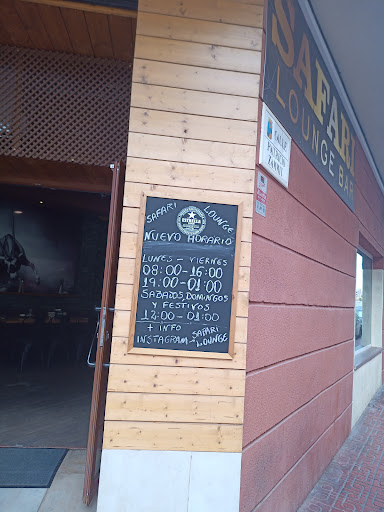 SAFARI
LOUNGE BAR
CALLE
SAFARI LOUNGE
ESTRELLA
NUEVO HORARIO
LUNES - VIERNES
08:00-16:00
19:00-01:00
SABADOS, DOMINGOS
Y FESTIVOS
12:00-01:00
+ INFO
INSTAGRAM SAFARI
LOUNGE